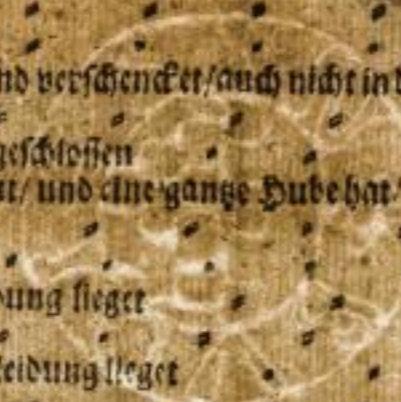 nd verschencket/auch nicht in
geschlossen
und eine gantze Hube hat
ung lieget
eidung lieget